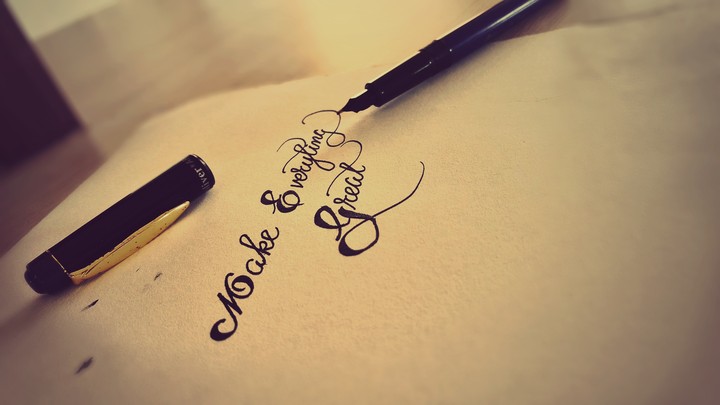 Make Everything
Great